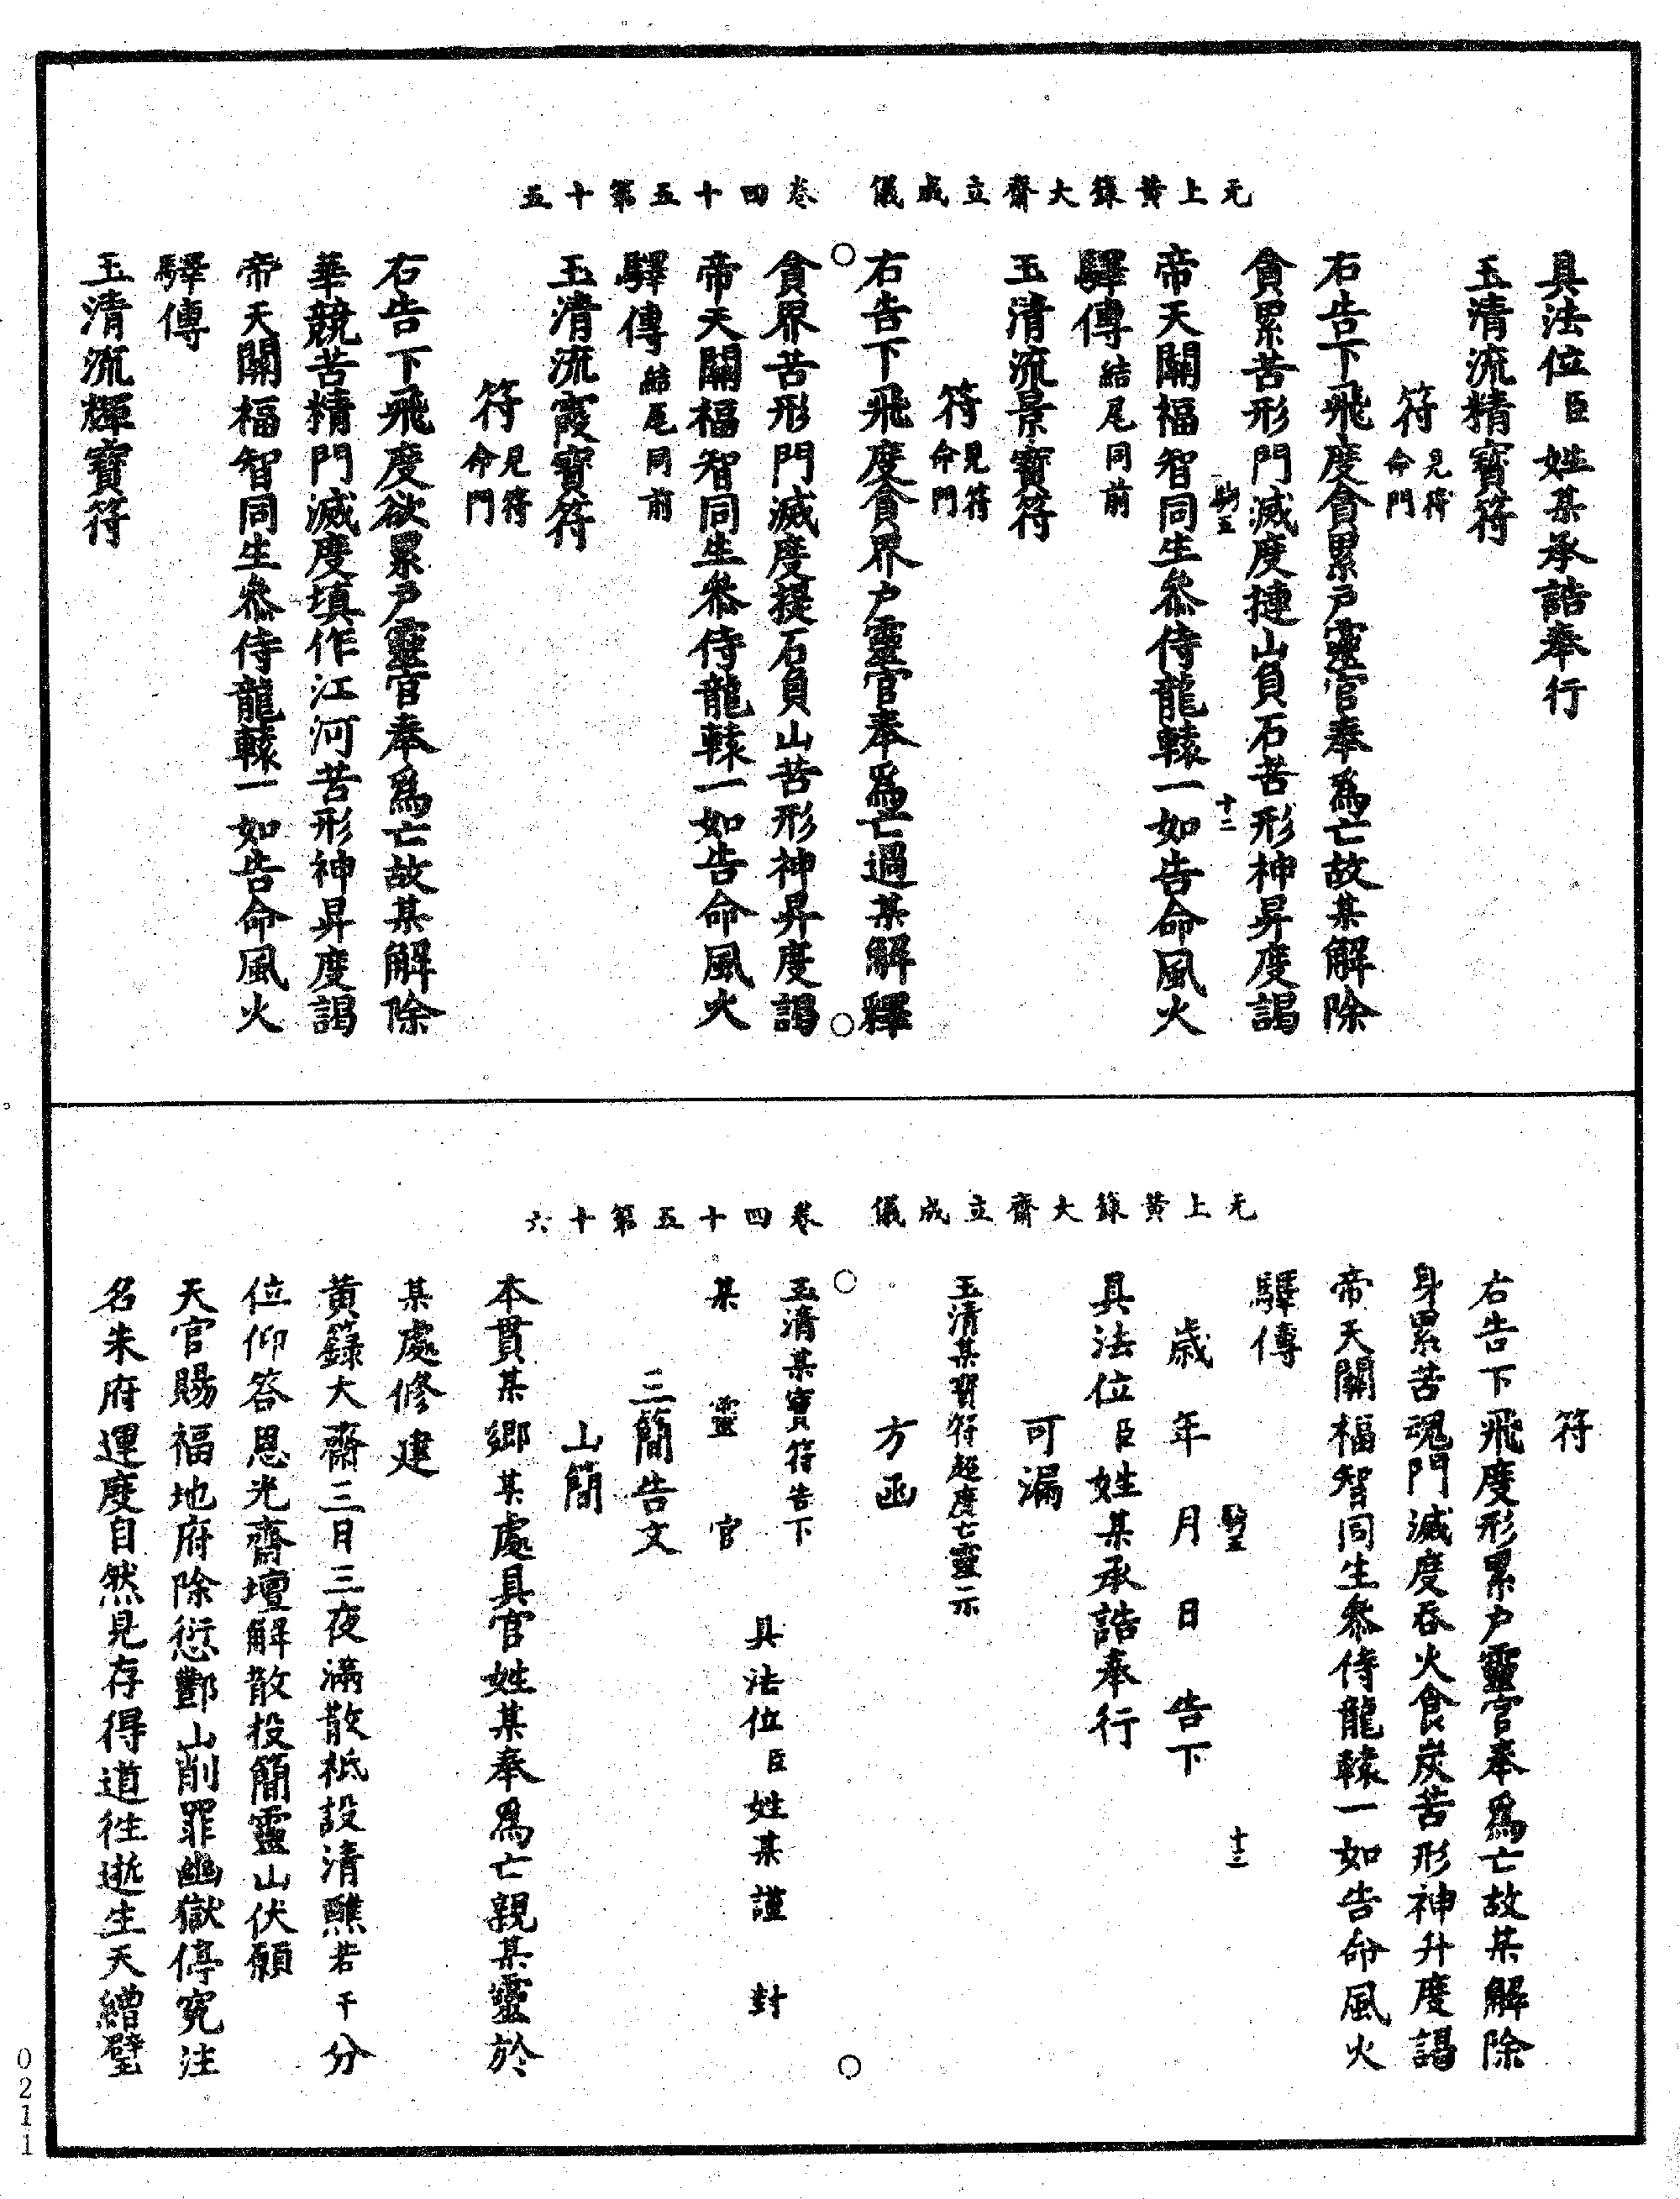 无上黃籙大齋立成儀　卷四十五第十五
具法位臣姓某承誥奉行
玉清流精寶符
符見符命門
右告下飛度貪累戶靈官奉爲亡故某解除
貪累苦形門滅度揵山負石苦形神昇度謁
十二
帝天關福智同生叅侍龍轅一如告命風火
驛傳結尾同前
玉清流景寶符
符見符命門
右告下飛度貪界戶靈官奉爲亡過某解釋
貪界苦形門滅度提石負山苦形神昇度謁
帝天關福智同生叅侍龍轅一如告命風火
驛傳結尾同前
玉清流霞寶符
符見符命門
右告下飛度欲累戶靈官奉爲亡故某解除
華競苦精門滅度填作江河苦形神昇度謁
帝天關福智同生叅侍龍轅一如告命風火
驛傳
玉清流輝寶符
无上黃籙大齋立成儀　卷四十五第十六
符
右告下飛度形累戶靈官奉爲亡故某解除
身累苦魂門滅度吞火食炭苦形神升度謁
帝天關福智同生叅侍龍轅一如告命風火
驛傳
十三
歲　年　月　日　告下
具法位臣姓某承誥奉行
可漏
玉清某寶符超度亡靈一宗
方函
玉清某寶符告下
某　靈　官
具法位臣姓某謹　封
三簡告文
山簡
本貫某鄉某處具官姓某奉爲亡親某靈於
某處修建
黃籙大齋三日三夜滿散祗設清醮若干分
位仰答恩光齋壇解散投簡靈山伏願
天官賜福地府除愆酆山削罪幽獄停寃注
名朱府運度自然見存得道往逝生天繒璧
0211